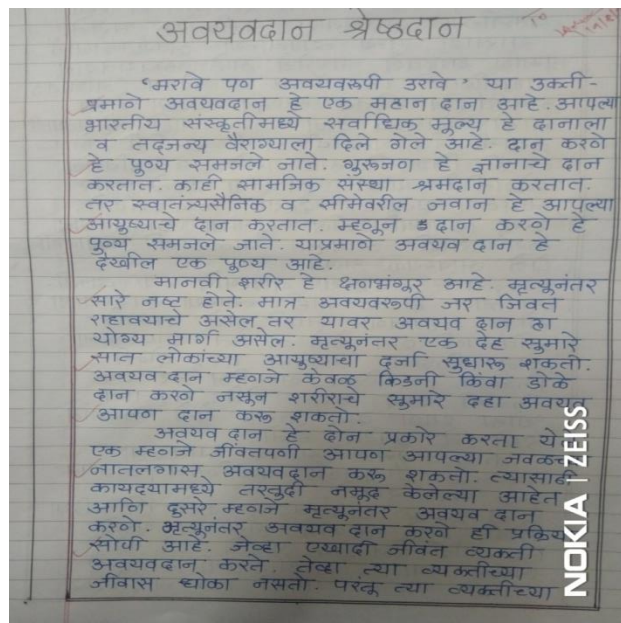 अवयवदान श्रेष्ठदान
'मरावे पण अवयवरूपी उरावे' या उक्ती-
प्रमाणे अवयवदान हे एक महान दान आहे. आपल्या
भारतीय संस्कृतीमध्ये सर्वाधिक मूल्य हे दानाला
व तद्जन्य वैराग्याला दिले गेले आहे. दान करणे
हे पुण्य समजले जाते. गुरुजन हे ज्ञानाचे दान
करतात. काही सामजिक संस्था श्रमदान करतात.
तर स्वातंत्र्यसैनिक व सीमेवरील जवान हे आपल्या
आयुष्याचे दान करतात. म्हणून दान करणे हे
पुण्य समजले जाते. याप्रमाणे अवयव दान हे
देखील एक पुण्य आहे.
मानवी शरीर हे क्षणभंगूर आहे. मृत्यूनंतर
सारे नष्ट होते. मात्र अवयवरूपी जर जिवंत
राहावयाचे असेल तर यावर अवयव दान हा
योग्य मार्ग असेल. मृत्यूनंतर एक देह सुमारे
सात लोकांच्या आयुष्याचा दर्जा सुधारू शकतो.
अवयव दान म्हणजे केवळ किडनी किंवा डोळे
दान करणे नसून शरीराचे सुमारे दहा अवयव
आपण दान करू शकतो.
अवयव दान हे दोन प्रकारे करता
एक म्हणजे जीवंतपणी आपण आपल्या
नातलगास अवयवदान करू शकतो. त्यासाठी
कायद्यामध्ये तरतुदी नमूद केलेल्या आहेत
आणि दुसरे म्हणजे मृत्यूनंतर अवयव दान
करणे. मृत्यूनंतर अवयव दान करणे ही
सोपी आहे. जेव्हा एखादी जीवंत व्यक्ती
अवयवदान करते. तेव्हा त्या व्यक्तीच्या
जीवास धोका नसतो. परंतू त्या व्यक्तीच्या
NOKIA | ZEISS